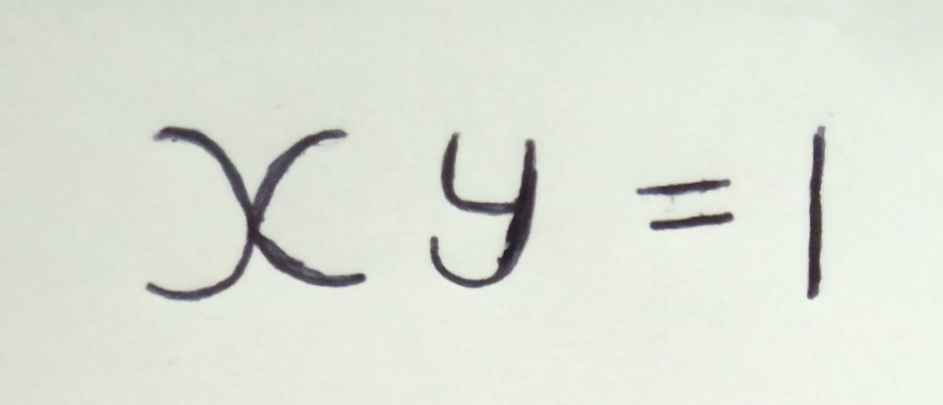 xy = 1